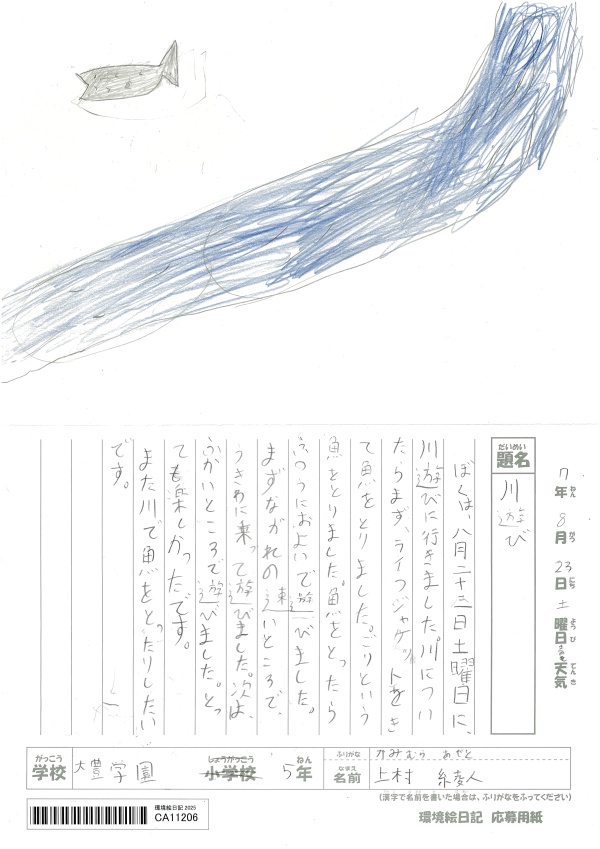 7年ねん8月がつ23日にち土曜日ようび天気てんき
だいめい
題名
川遊び
ぼくは、八月二十三日土曜日に、
川遊びに行きました。川につい
たらまず、ライフジャケットをき
て魚をとりました。ごりという
魚をとりました。魚をとったら
ふつうにおよいで遊びました。
まずながれの速いところで、
うきわに乗って遊びました。次は、
ふかいところで遊びました。とっ
ても楽しかったです。
また川で魚をとったりしたい
です。
がっこう
学校
大豊学園
しょうがっこう
小学校
5年ねん
ふりがな
かみむら あやと
なまえ
名前
上村 綾人
(漢字で名前を書いた場合は、ふりがなをふってください)
環境絵日記 2025
CA11206
環境絵日記 応募用紙